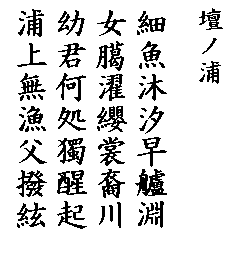 壇ノ浦
細魚沐汐早艫淵
女臈濯纓裳裔川
幼君何処獨醒起
浦上無漁父撥絃